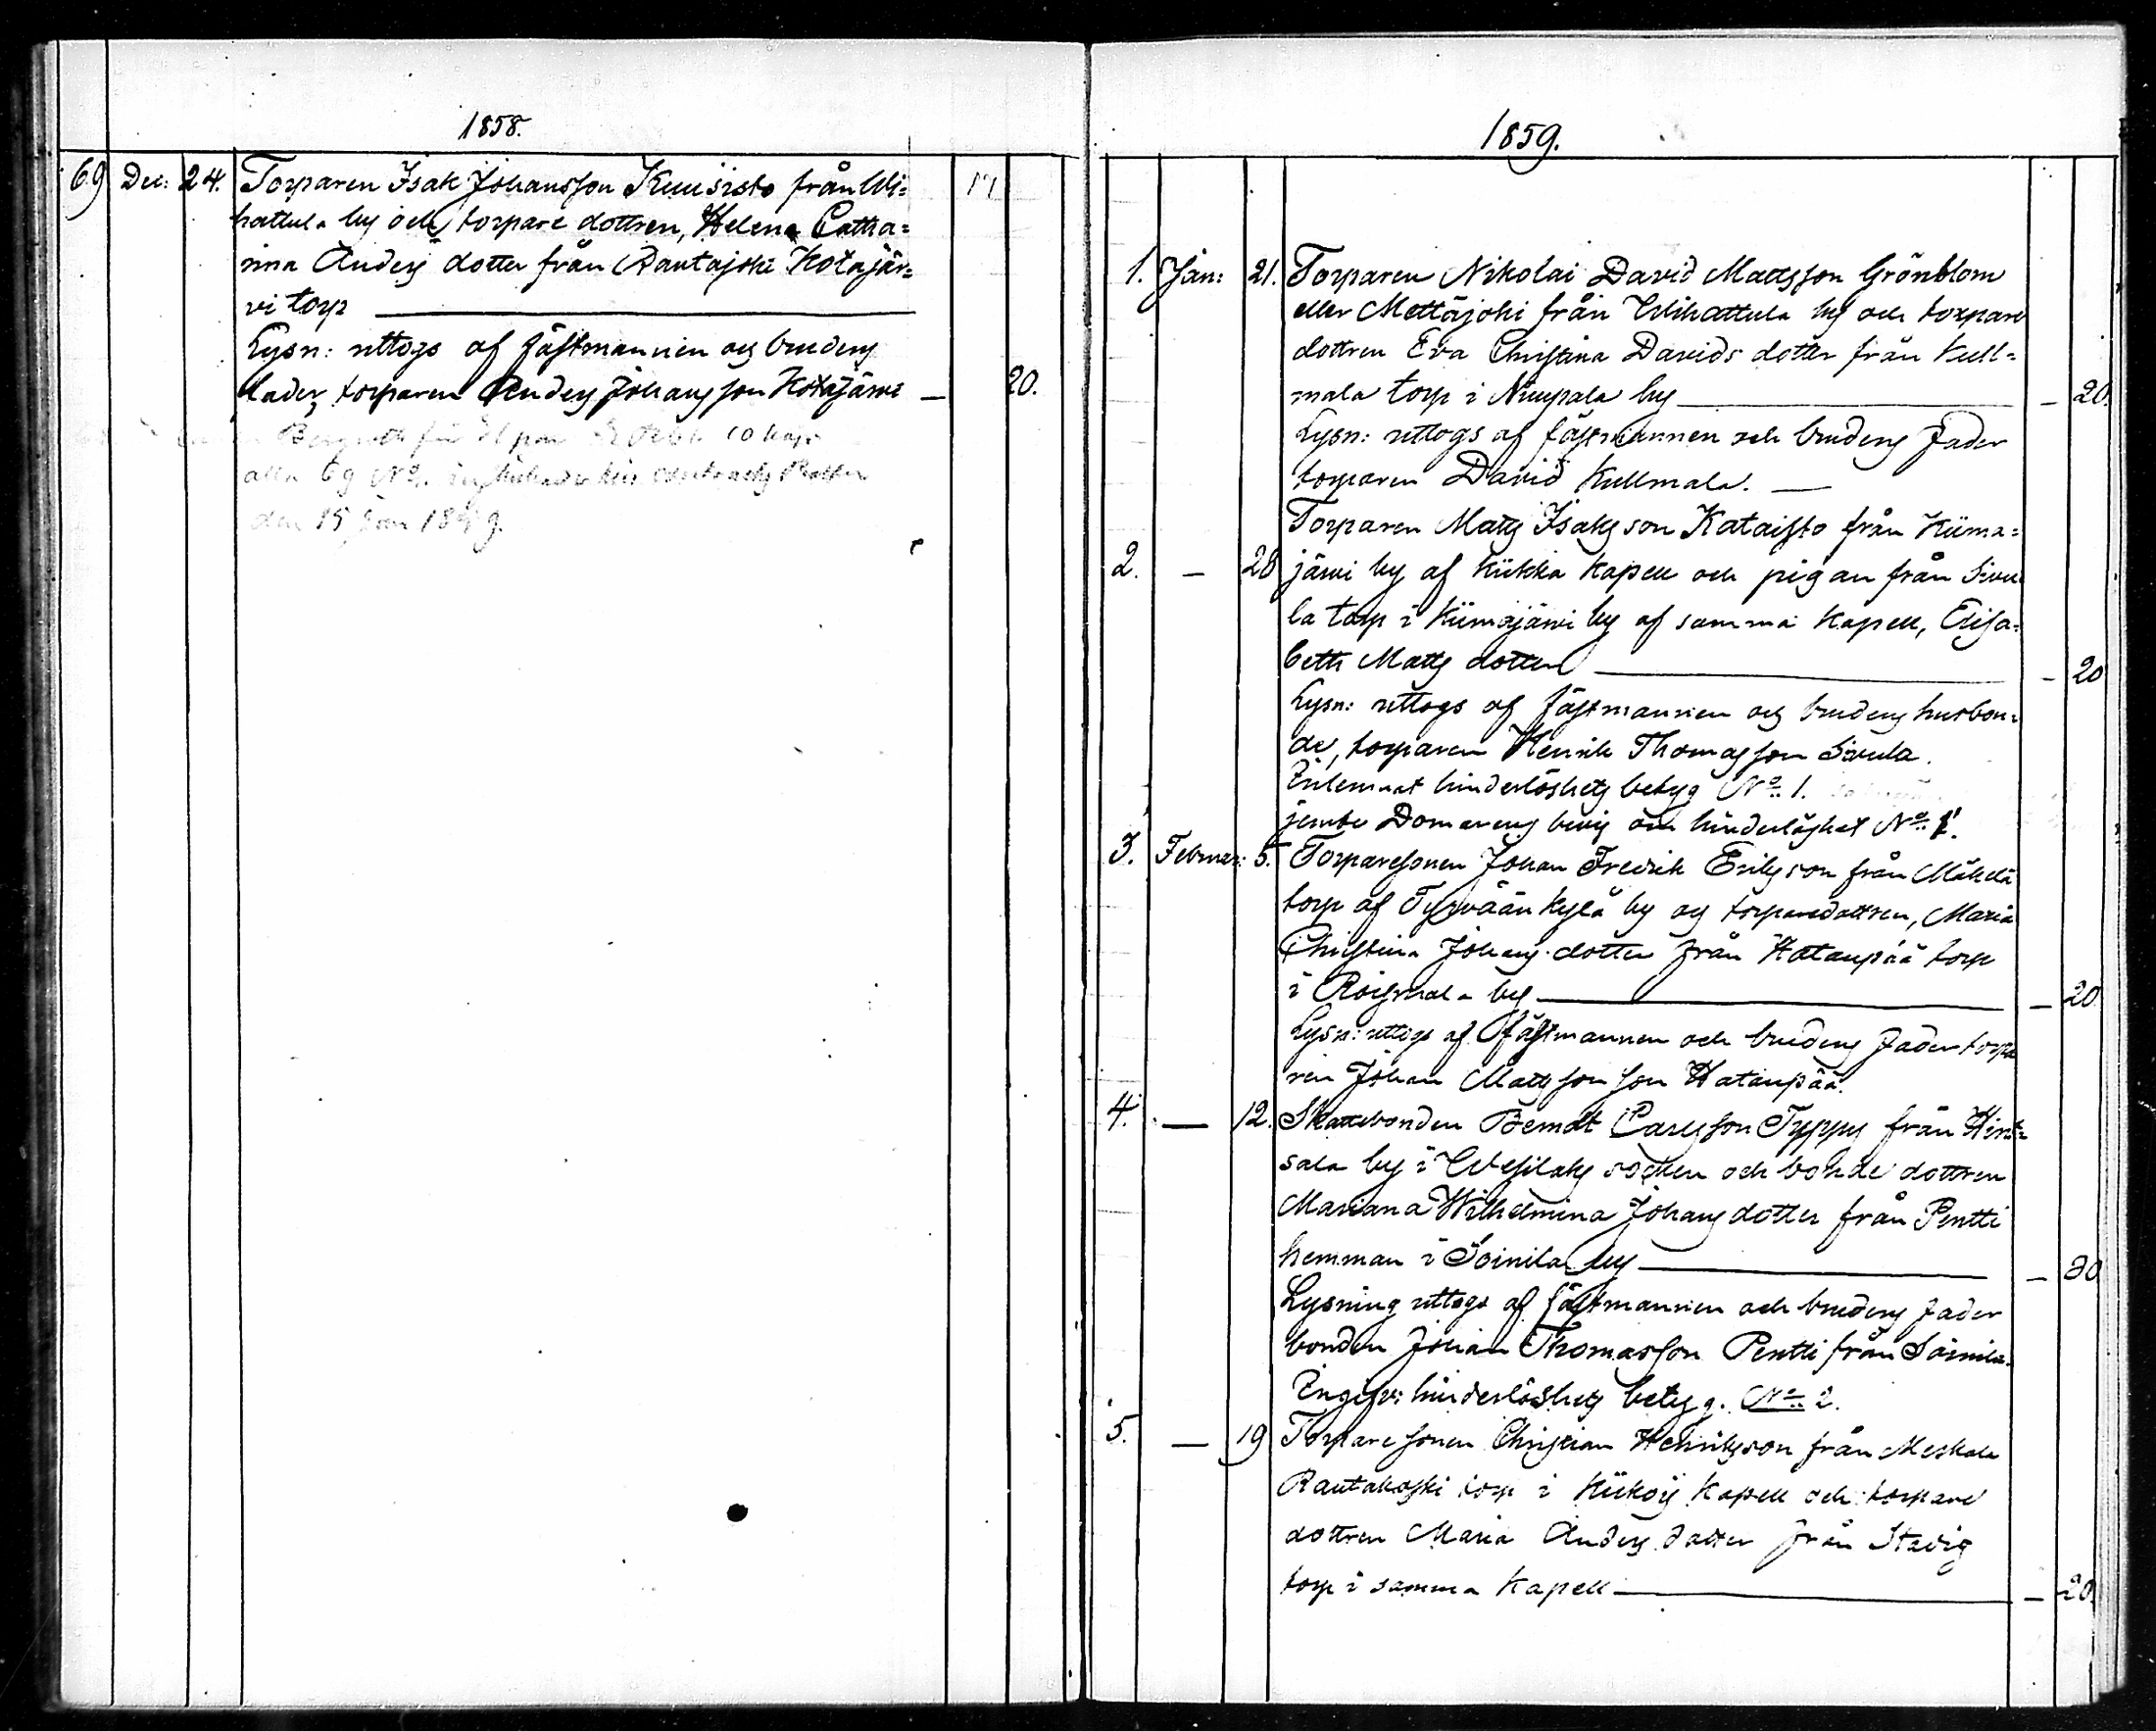 1858.
69 Dec: 24. Torparen Isak Johansson Kuusisto från Wi=
hattula by och torpare dottren, Helena Catha=
rina Anders dotter från Rautajoki Kotajär=
vi torp
Lysn: uttogs af fästmannen och brudens
fader, torparen Anders Johansson Kotajärvi — 20.
alla 69 No
den 15 Jan 1859.
1859.
1. Jan: 21. Torparen Nikolai David Matsson Grönblom
eller Mettäjoki från Wihattula by och torpare
dottren Eva Christina Davids dotter från Kull=
mala torp i Nuupala by — 20.
Lysn: uttogs af fästmannen och brudens fader
torparen David Kullmala. —
Torparen Matts Isaksson Kataisto från Kiima=
2. — 28 järvi by af Kiikka Kapell och pigan från Sivu
la torp i Kiimajärvi by af samma Kapell, Elisa=
beth Matts dotter — 20
Lysn: uttogs af fästmannen och brudens husbon=
de, torparen Henrik Thomasson Sivula.
Inlemnat hinderlöshets betyg No 1.
jemte Domarens bevis om hinderlöshet No 1.
3. Februar: 5. Torparesonen Johan Fredrik Eriksson från Mäkelä
torp af Tyrvään kylä by och torparedottren, Maria
Christina Johans dotter från Hatanpää torp
i Roismala by — 20
Lysn: uttogs af fästmannen och brudens fader torpa
ren Johan Mattsson Hatanpää.
4. — 12. Skattebonden Berndt Carlsson Typpy från Hint=
sala by i Wesilaks socken och bonde dottren
Mariana Wilhelmina Johans dotter från Pentti
hemman i Soinila by — 30
Lysning uttogs af fästmannen och brudens fader
bonden Johan Thomasson Pentti från Soinila.
Ingifv: hinderlöshets betyg. No 2.
5. — 19 Torparesonen Christian Henriksson från Meskala
Rautakoski torp i Kiikois Kapell och torpare
dottren Maria Anders dotter från Stavig
torp i samma Kapell — 20